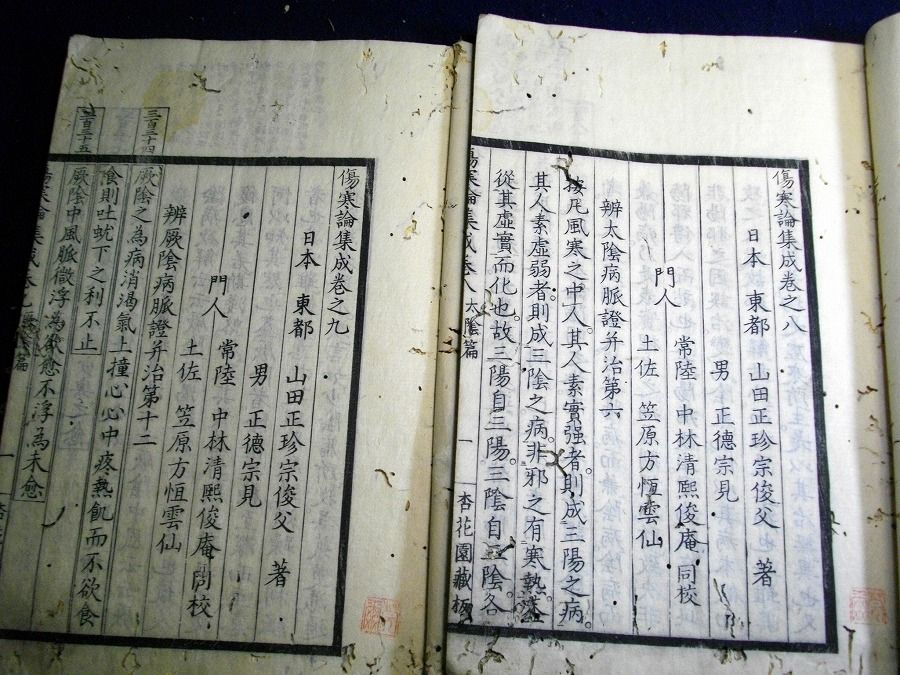 傷寒論集成卷之八
日本　東都　山田正珍宗俊父　著
男　正德宗見
門人　常陸　中林清熙俊庵　同校
土佐　笠原方恒雲仙
辨太陰病脈證并治第六
按凡風寒之中人。其人素實强者。則成三陽之病。
其人素虛弱者。則成三陰之病。非邪之有寒熱。
從其虛實而化也。故三陽自三陽。三陰自三陰。各
傷寒論集成卷八　太陰篇　一　杏花園藏板
傷寒論集成卷之九
日本　東都　山田正珍宗俊父　著
男　正德宗見
門人　常陸　中林清熙俊庵　同校
土佐　笠原方恒雲仙
辨厥陰病脈證并治第十二
三百三十四
厥陰之為病消渴氣上撞心心中疼熱飢而不欲食
食則吐蚘下之利不止
三百三十五
厥陰中風脈微浮為欲愈不浮為未愈
集成卷　篇　一　杏